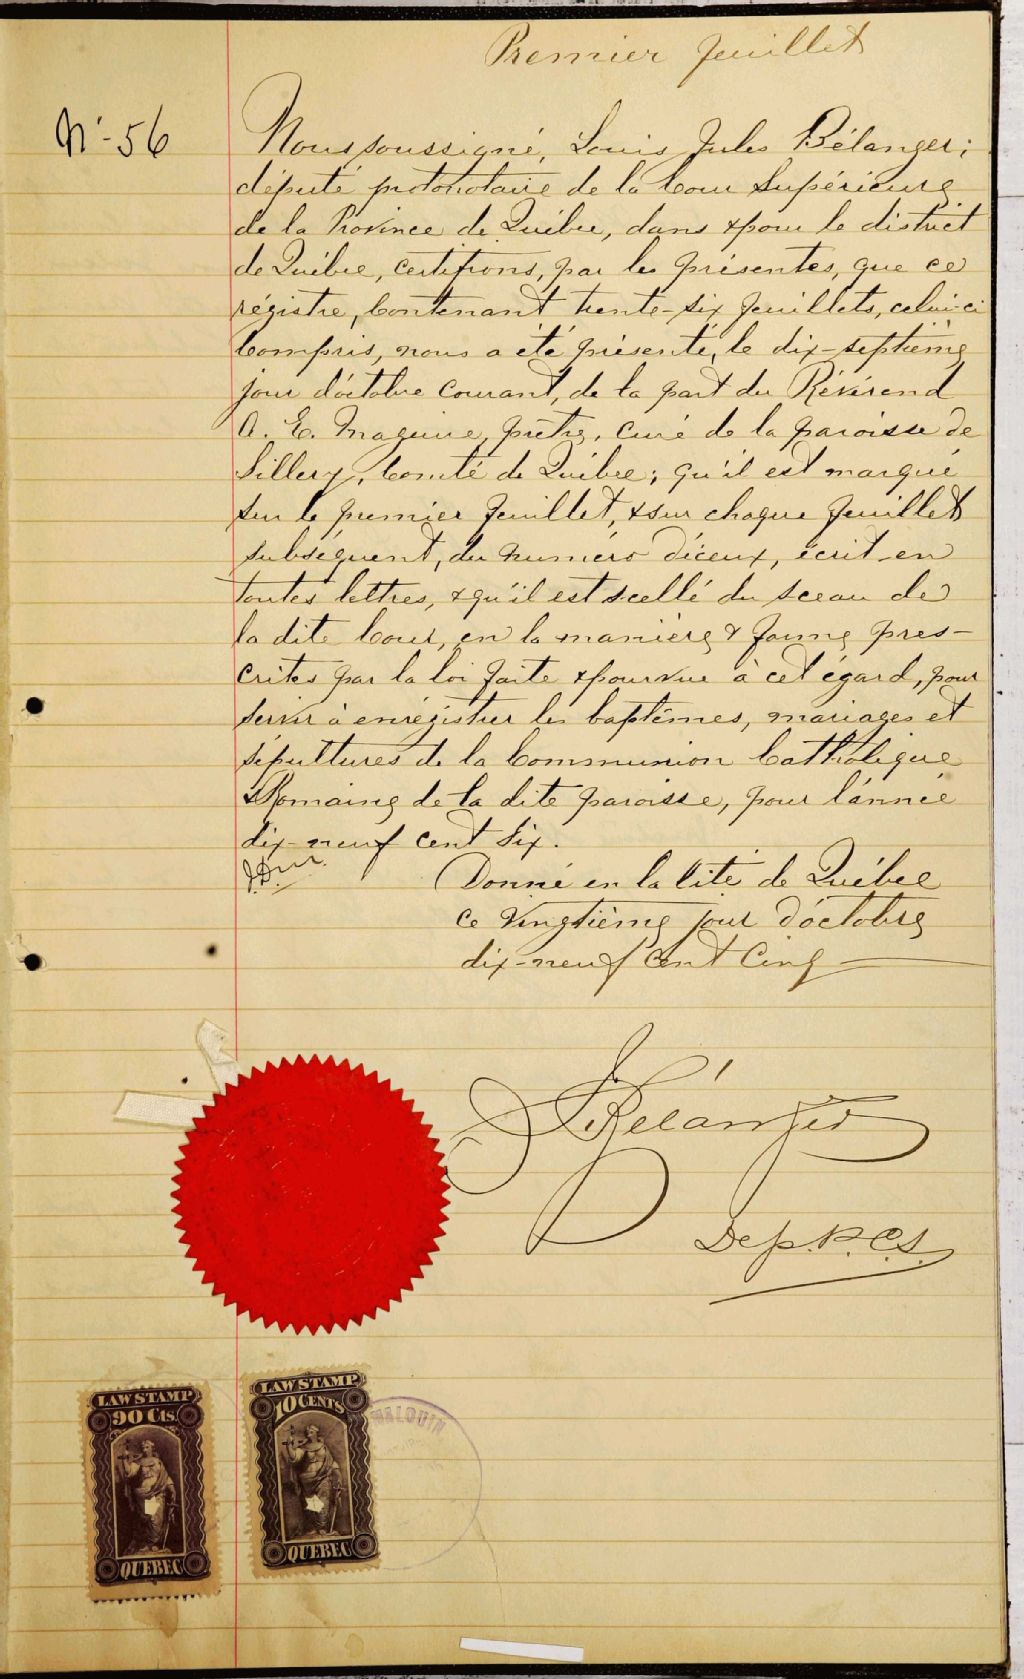 Premier feuillet
Nº-56
Nous soussigné, Louis Jules Bélanger;
député protonotaire de la Cour Supérieure
de la Province de Québec, dans & pour le district
de Québec, certifions, par les présentes, que ce
régistre, contenant trente-six feuillets, celui-ci
compris, nous a été présenté, le dix-septième
jour d'octobre courant, de la part du Révérend
A. E. Maguire, prêtre, curé de la paroisse de
Sillery, Comté de Québec; qu'il est marqué
sur le premier feuillet, & sur chaque feuillet
subséquent, du numéro d'iceux, écrit en
toutes lettres, & qu'il est scellé du sceau de
la dite Cour, en la manière & forme pres-
crites par la loi faite & pourvue à cet égard, pour
servir à enrégistrer les baptêmes, mariages et
sépultures de la Communion Catholique
& Romaine de la dite paroisse, pour l'année
dix-neuf cent six.
Donné en la Cité de Québec
ce vingtième jour d'octobre
dix-neuf cent cinq
Bélanger
Dep. P. C. S.
LAW STAMP
90 Cts.
QUEBEC
LAW STAMP
10 CENTS
QUEBEC
MALOUIN